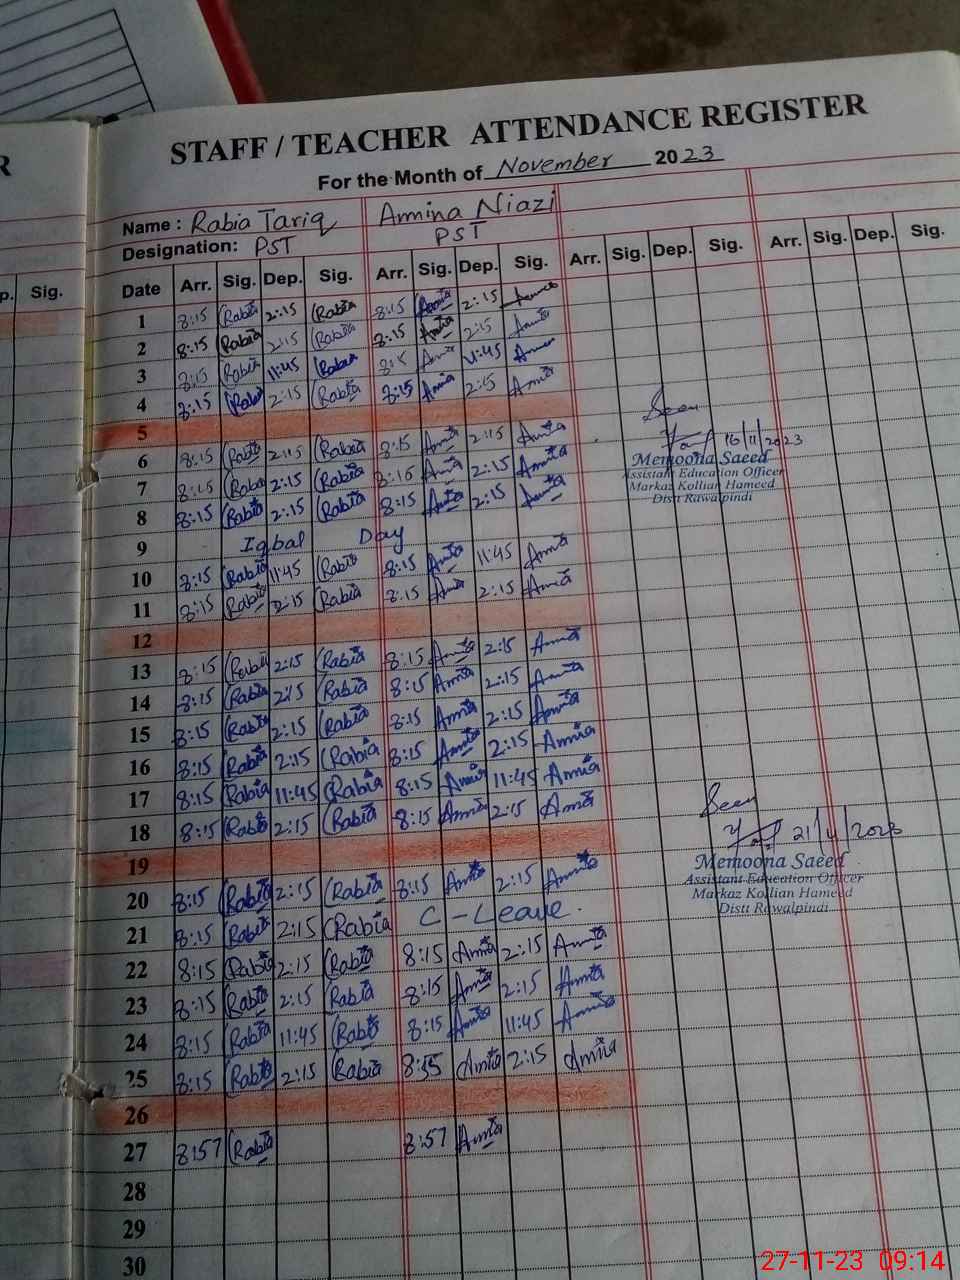 R
STAFF / TEACHER ATTENDANCE REGISTER
For the Month of November 2023
Name : Rabia Tariq Amina Niazi
Designation: PST PST
p. Sig. Date Arr. Sig. Dep. Sig. Arr. Sig. Dep. Sig. Arr. Sig. Dep. Sig. Arr. Sig. Dep. Sig.
1 8:15 Rabia 2:15 Rabia 8:15 Amna 2:15
2 8:15 Rabia 2:15 Rabia 8:15 Amna 2:15 Amna
3 8:15 Rabia 11:45 Rabia 8:15 Amna 11:45 Amna
4 8:15 Rabia 2:15 Rabia 8:15 Amna 2:15 Amna
5
6 8:15 Rabia 2:15 Rabia 8:15 Amna 2:15 Amna
7 8:15 Rabia 2:15 Rabia 8:15 Amna 2:15 Amna
8 8:15 Rabia 2:15 Rabia 8:15 Amna 2:15 Amna
9 Iqbal Day
10 8:15 Rabia 11:45 Rabia 8:15 Amna 11:45 Amna
11 8:15 Rabia 2:15 Rabia 8:15 Amna 2:15 Amna
12
13 8:15 Rabia 2:15 Rabia 8:15 Amna 2:15 Amna
14 8:15 Rabia 2:15 Rabia 8:15 Amna 2:15 Amna
15 8:15 Rabia 2:15 Rabia 8:15 Amna 2:15 Amna
16 8:15 Rabia 2:15 Rabia 8:15 Amna 2:15 Amna
17 8:15 Rabia 11:45 Rabia 8:15 Amna 11:45 Amna
18 8:15 Rabia 2:15 Rabia 8:15 Amna 2:15 Amna
19
20 8:15 Rabia 2:15 Rabia 8:15 Amna 2:15 Amna
21 8:15 Rabia 2:15 Rabia C-Leave.
22 8:15 Rabia 2:15 Rabia 8:15 Amna 2:15 Amna
23 8:15 Rabia 2:15 Rabia 8:15 Amna 2:15 Amna
24 8:15 Rabia 11:45 Rabia 8:15 Amna 11:45 Amna
25 8:15 Rabia 2:15 Rabia 8:15 Amna 2:15 Amna
26
27 8:57 Rabia 8:57 Amna
28
29
30
Seen
16/11/2023
Memoona Saeed
Assistant Education Officer
Markaz Kollian Hameed
Distt Rawalpindi
Seen
21/11/2023
Memoona Saeed
Assistant Education Officer
Markaz Kollian Hameed
Distt Rawalpindi
27-11-23 09:14